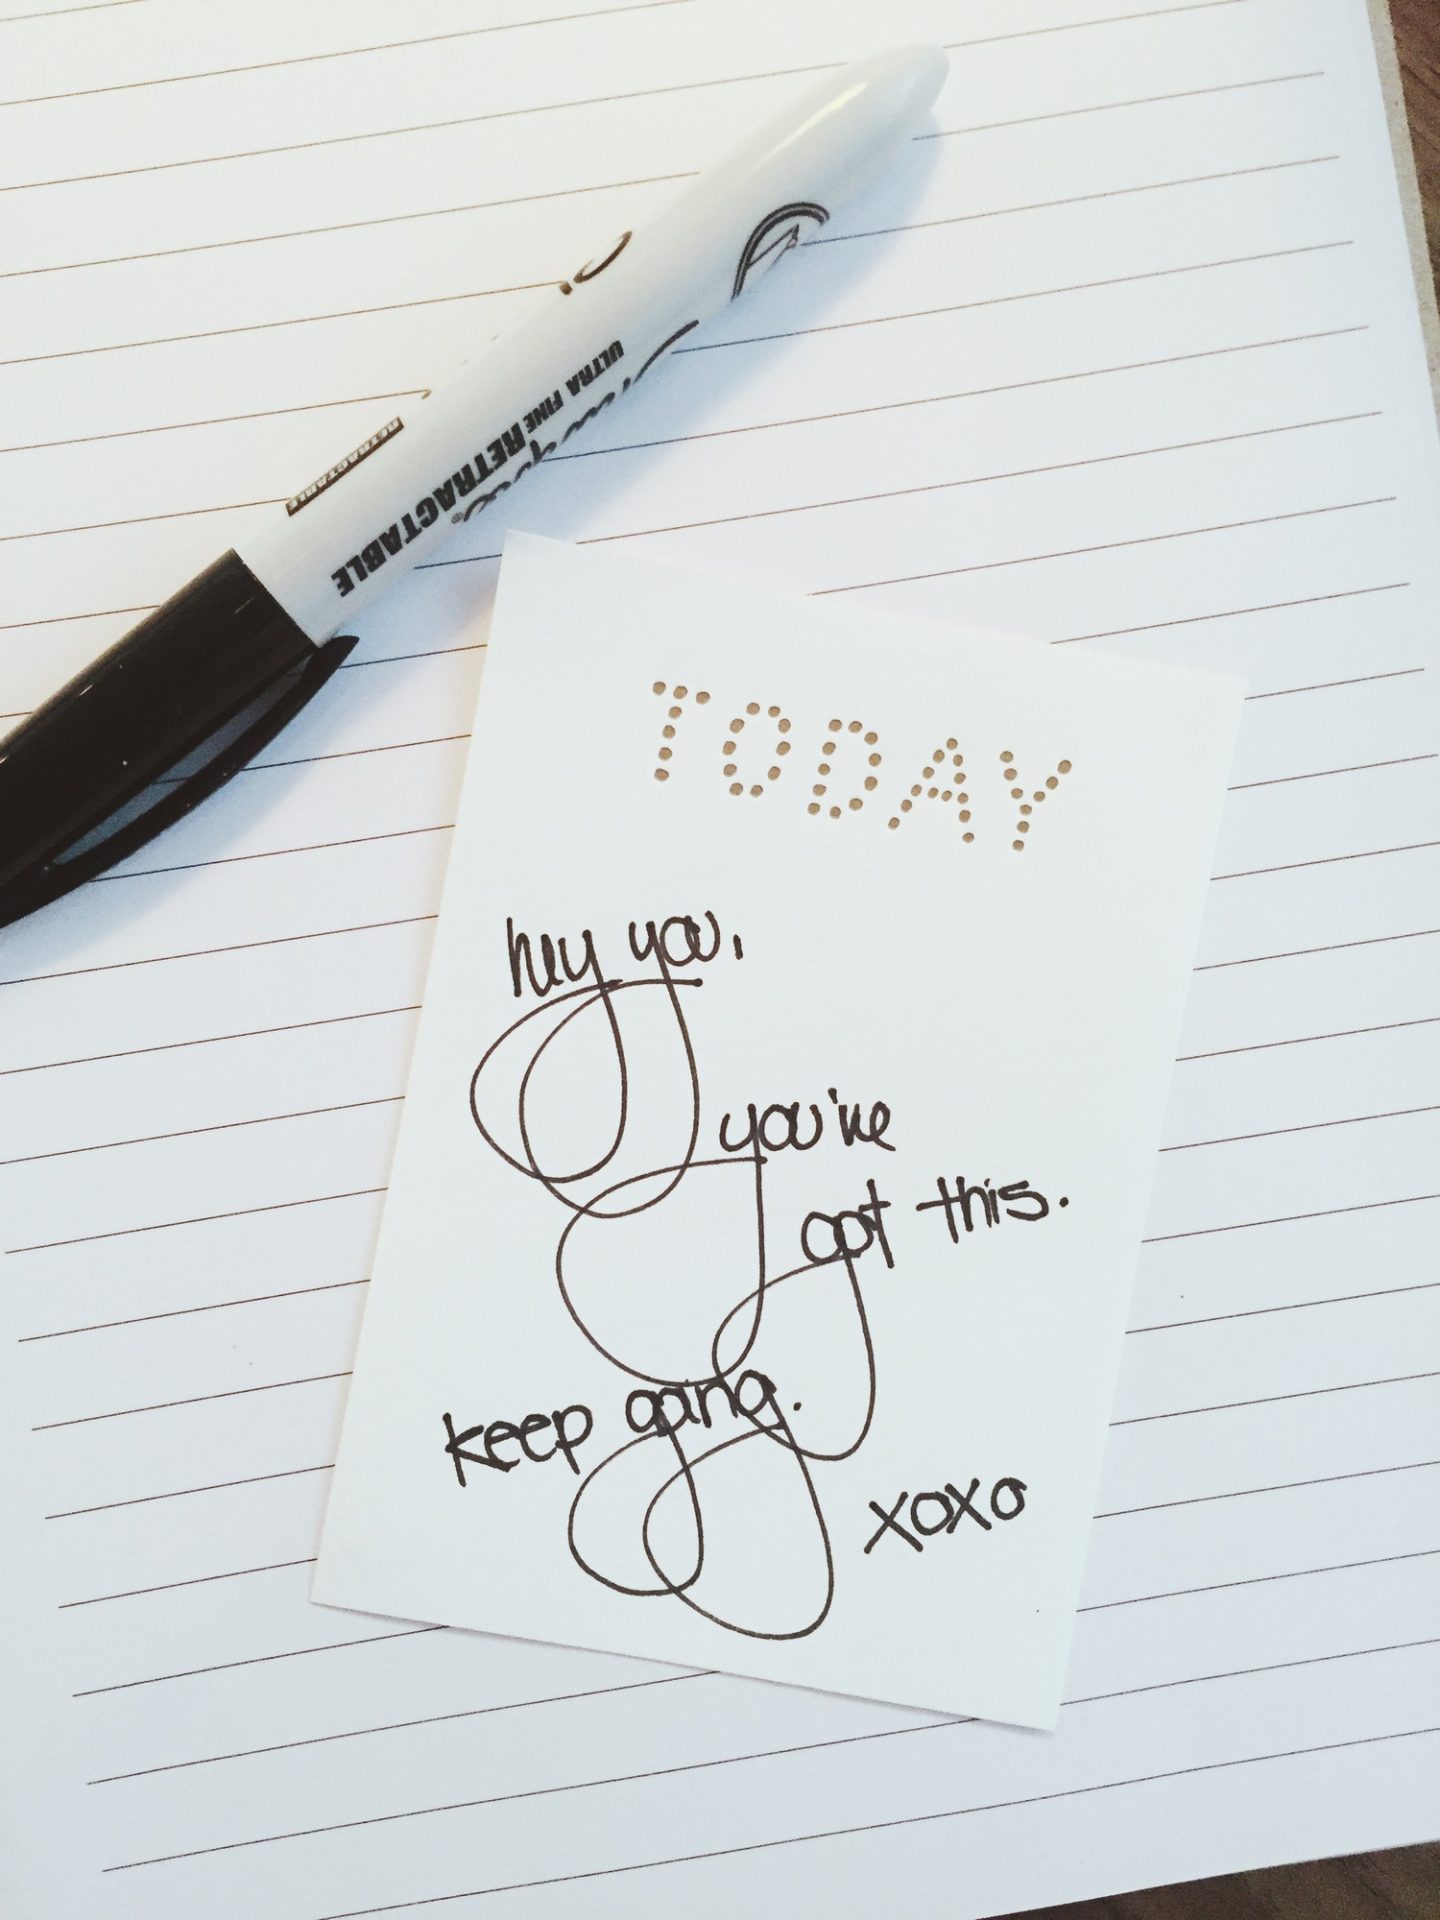 ULTRA FINE RETRACTABLE
RETRACTABLE
TODAY
hey you,
you've
got this.
keep going.
xoxo